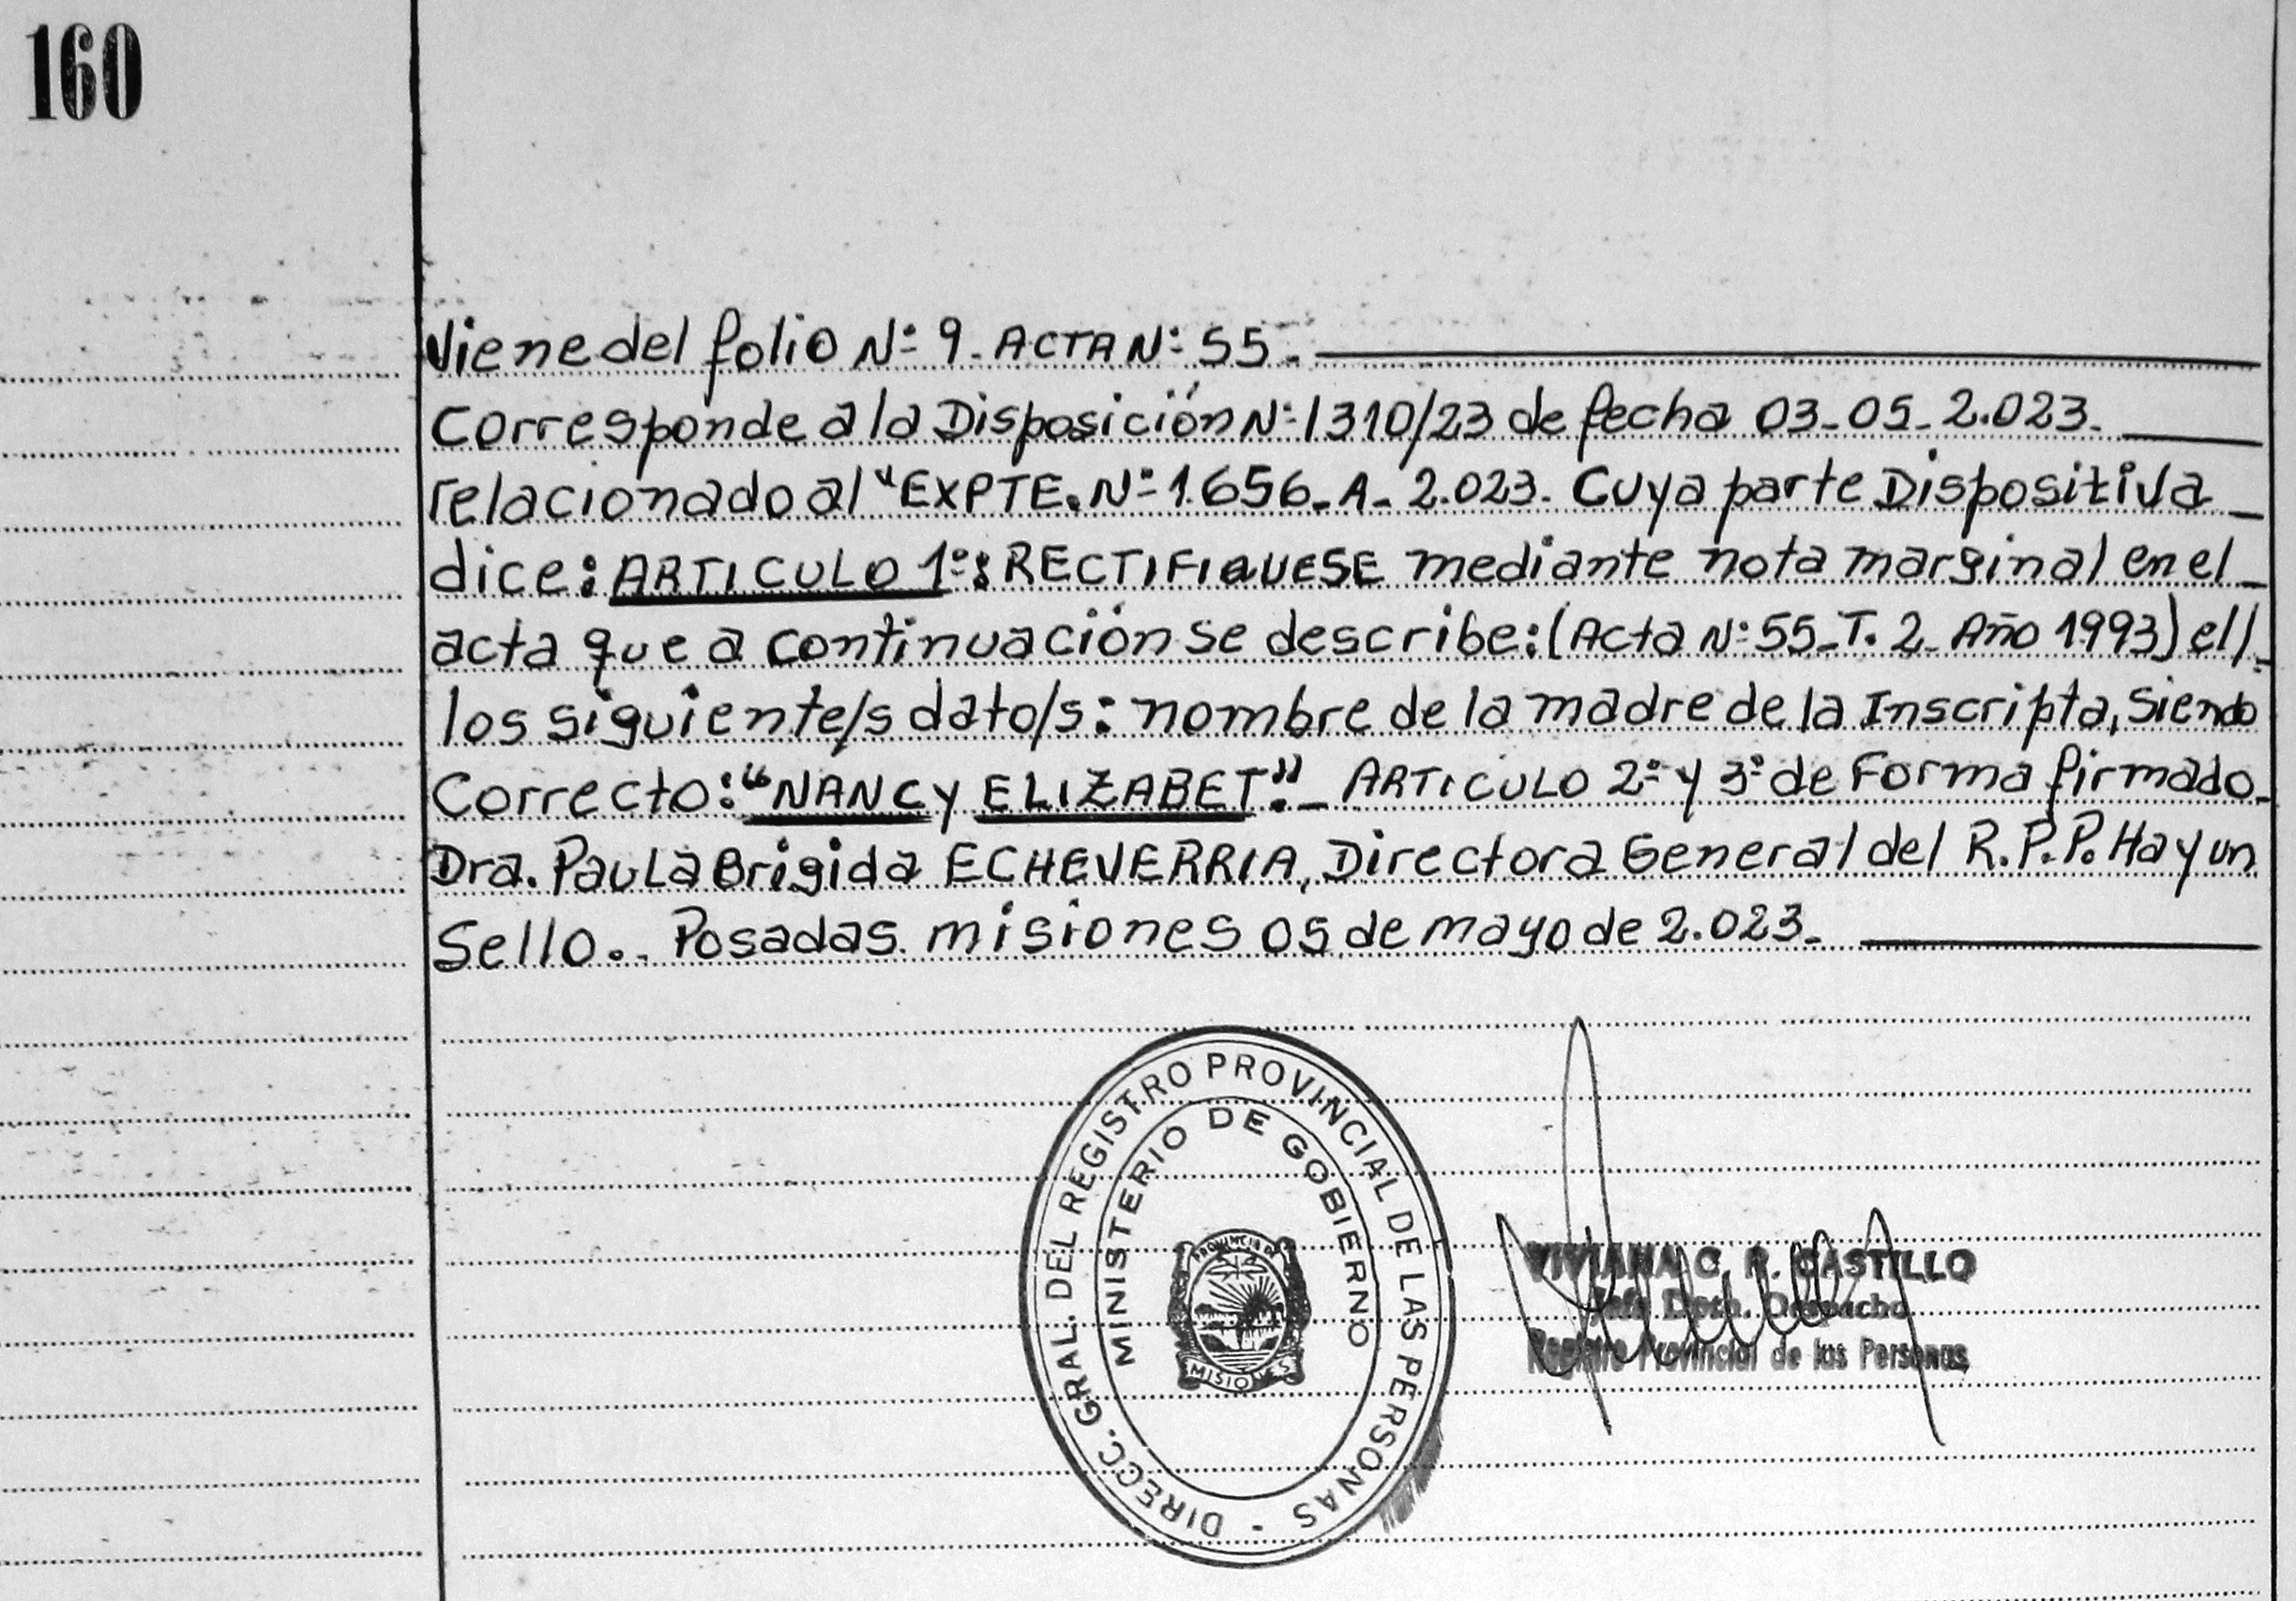 160
Viene del folio N° 9. ACTA N° 55.
Corresponde a la Disposición N° 1310/23 de fecha 03-05-2.023.
relacionado al "EXPTE. N° 1.656-A-2.023. Cuya parte Dispositiva
dice: ARTICULO 1°: RECTIFIQUESE mediante nota marginal en el
acta que a continuación se describe: (Acta N° 55-T. 2- Año 1993) el/
los siguiente/s dato/s: nombre de la madre de la Inscripta, siendo
Correcto: "NANCY ELIZABET".- ARTICULO 2° y 3° de Forma firmado
Dra. Paula Brigida ECHEVERRIA, Directora General del R.P.P. Hay un
Sello.. Posadas. misiones 05 de mayo de 2.023.
DIRECC. GRAL. DEL REGISTRO PROVINCIAL DE LAS PERSONAS -
MINISTERIO DE GOBIERNO
PROVINCIA DE
MISIONES
VIVIANA C. R. CASTILLO
Jefe Dpto. Despacho
Registro Provincial de las Personas